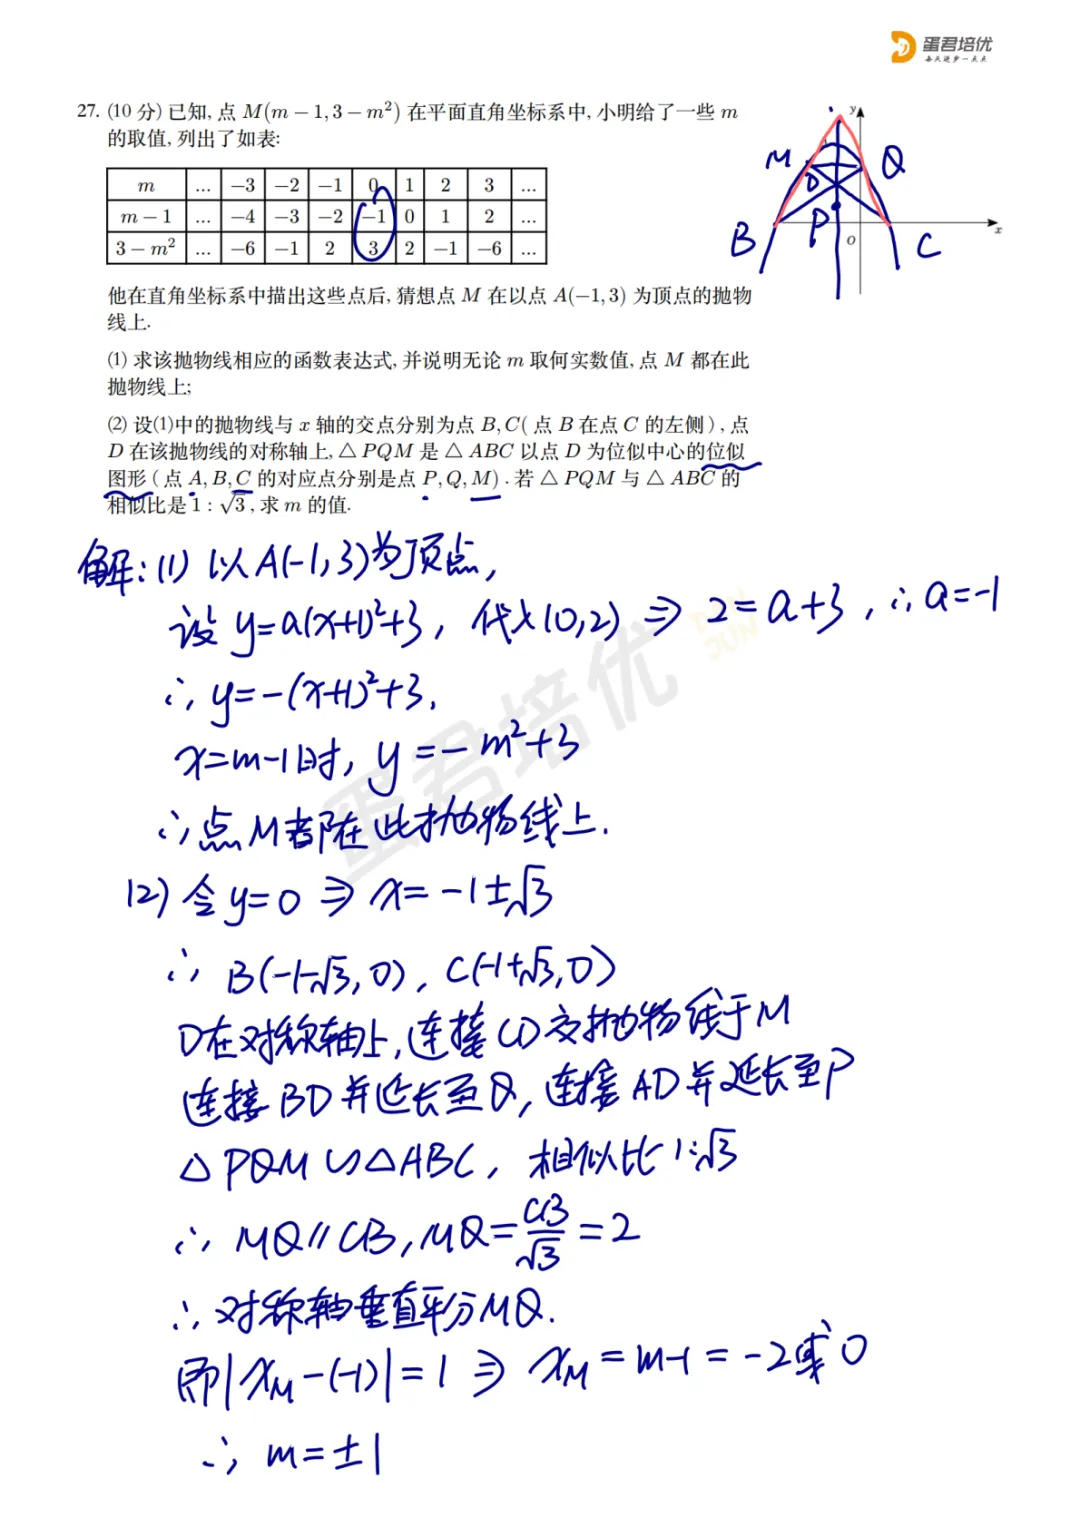 蛋君培优
每天进步一点点
27. (10 分) 已知, 点 M(m − 1, 3 − m²) 在平面直角坐标系中, 小明给了一些 m
的取值, 列出了如表:
m ... −3 −2 −1 0 1 2 3 ...
m − 1 ... −4 −3 −2 −1 0 1 2 ...
3 − m² ... −6 −1 2 3 2 −1 −6 ...
y
M
Q
D
B
P
O
C
x
他在直角坐标系中描出这些点后, 猜想点 M 在以点 A(−1, 3) 为顶点的抛物
线上.
(1) 求该抛物线相应的函数表达式, 并说明无论 m 取何实数值, 点 M 都在此
抛物线上;
(2) 设(1)中的抛物线与 x 轴的交点分别为点 B, C( 点 B 在点 C 的左侧 ) , 点
D 在该抛物线的对称轴上, △ PQM 是 △ ABC 以点 D 为位似中心的位似
图形 ( 点 A, B, C 的对应点分别是点 P, Q, M) . 若 △ PQM 与 △ ABC 的
相似比是 1 : √3 , 求 m 的值.
解: (1) 以A(-1,3)为顶点,
设 y=a(x+1)²+3, 代入(0,2) ⇒ 2=a+3, ∴a=-1
∴ y=-(x+1)²+3.
x=m-1时, y=-m²+3
∴点M都在此抛物线上.
(2) 令y=0 ⇒ x=-1±√3
∴ B(-1-√3, 0), C(-1+√3, 0)
D在对称轴上, 连接CD交抛物线于M
连接BD并延长至Q, 连接AD并延长至P
△PQM∽△ABC, 相似比1:√3
∴ MQ∥CB, MQ=CB/√3=2
∴对称轴垂直平分MQ.
即|xM-(-1)|=1 ⇒ xM=m-1=-2或0
∴ m=±1
蛋君培优
DAN
JUN